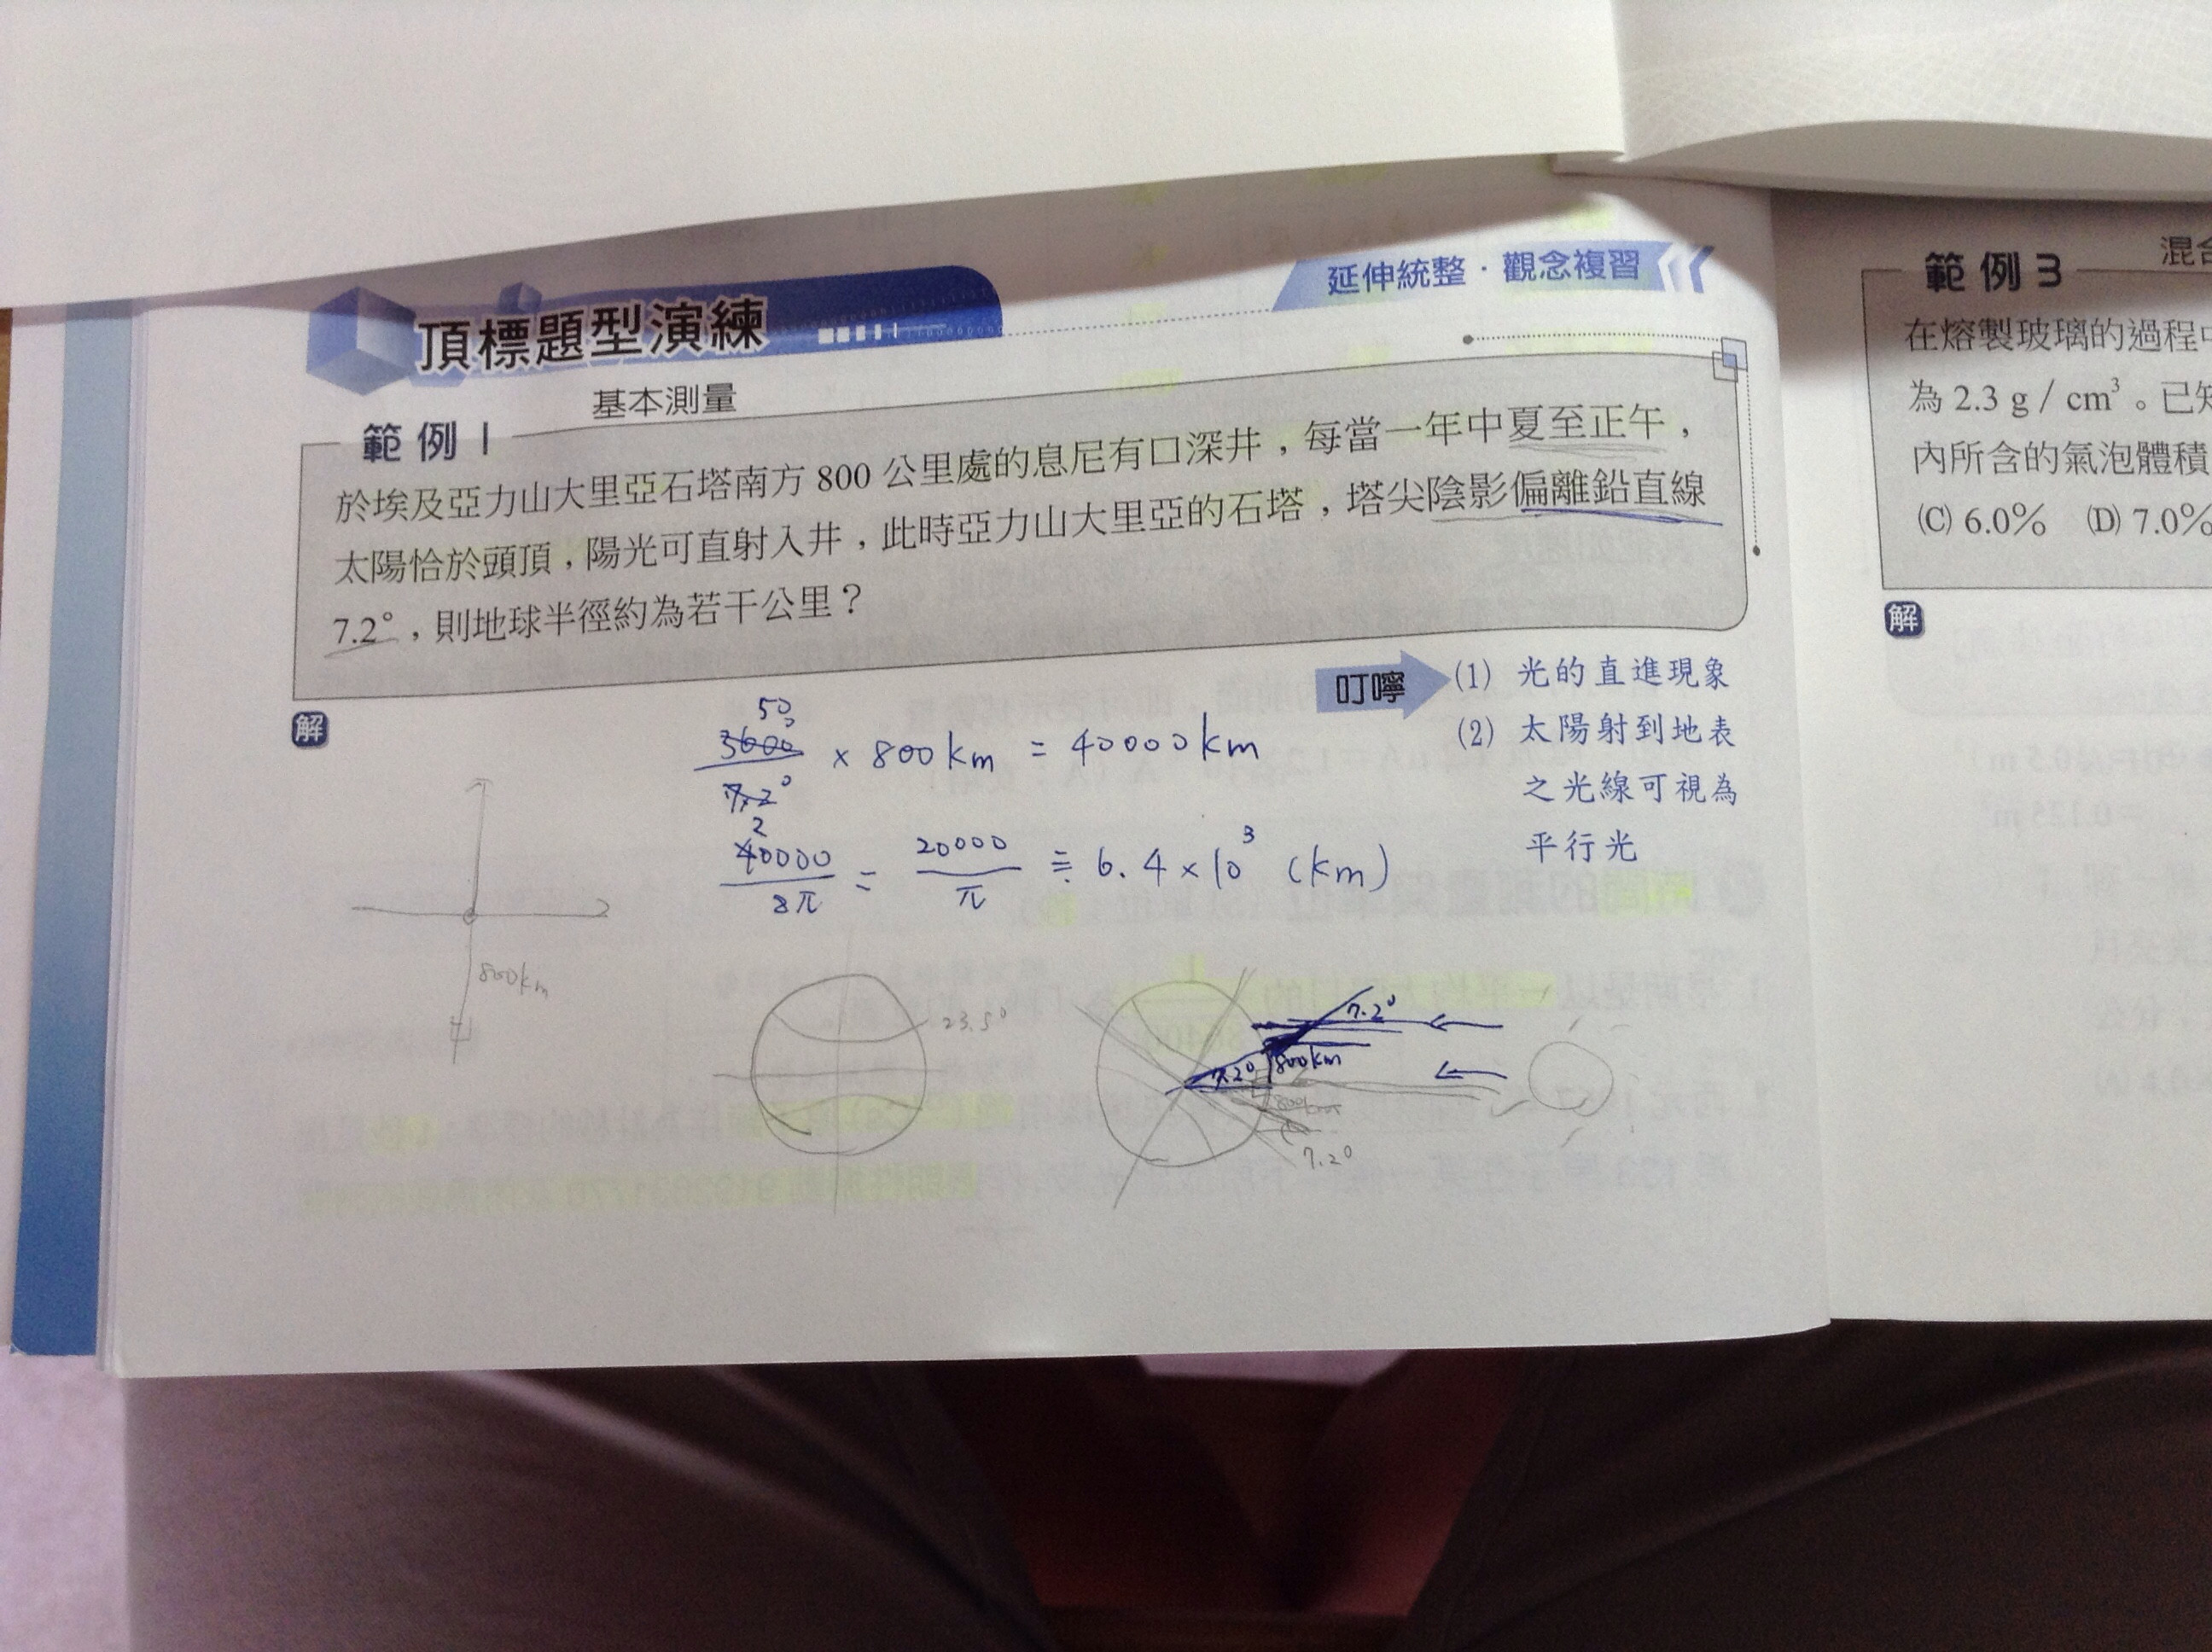 頂標題型演練
延伸統整·觀念複習
範例1
基本測量
於埃及亞力山大里亞石塔南方 800 公里處的息尼有口深井，每當一年中夏至正午，
太陽恰於頭頂，陽光可直射入井，此時亞力山大里亞的石塔，塔尖陰影偏離鉛直線
7.2°，則地球半徑約為若干公里？
解
叮嚀
(1) 光的直進現象
(2) 太陽射到地表
之光線可視為
平行光
50
360° / 7.2° × 800km = 40000km
2
40000 / 2π = 20000 / π ≒ 6.4×10³ (km)
800km
23.5°
7.2°
7.2°
800km
800km
7.2°
範例3
混合
在熔製玻璃的過程中
為 2.3 g / cm³。已知
內所含的氣泡體積
(C) 6.0% (D) 7.0%
解